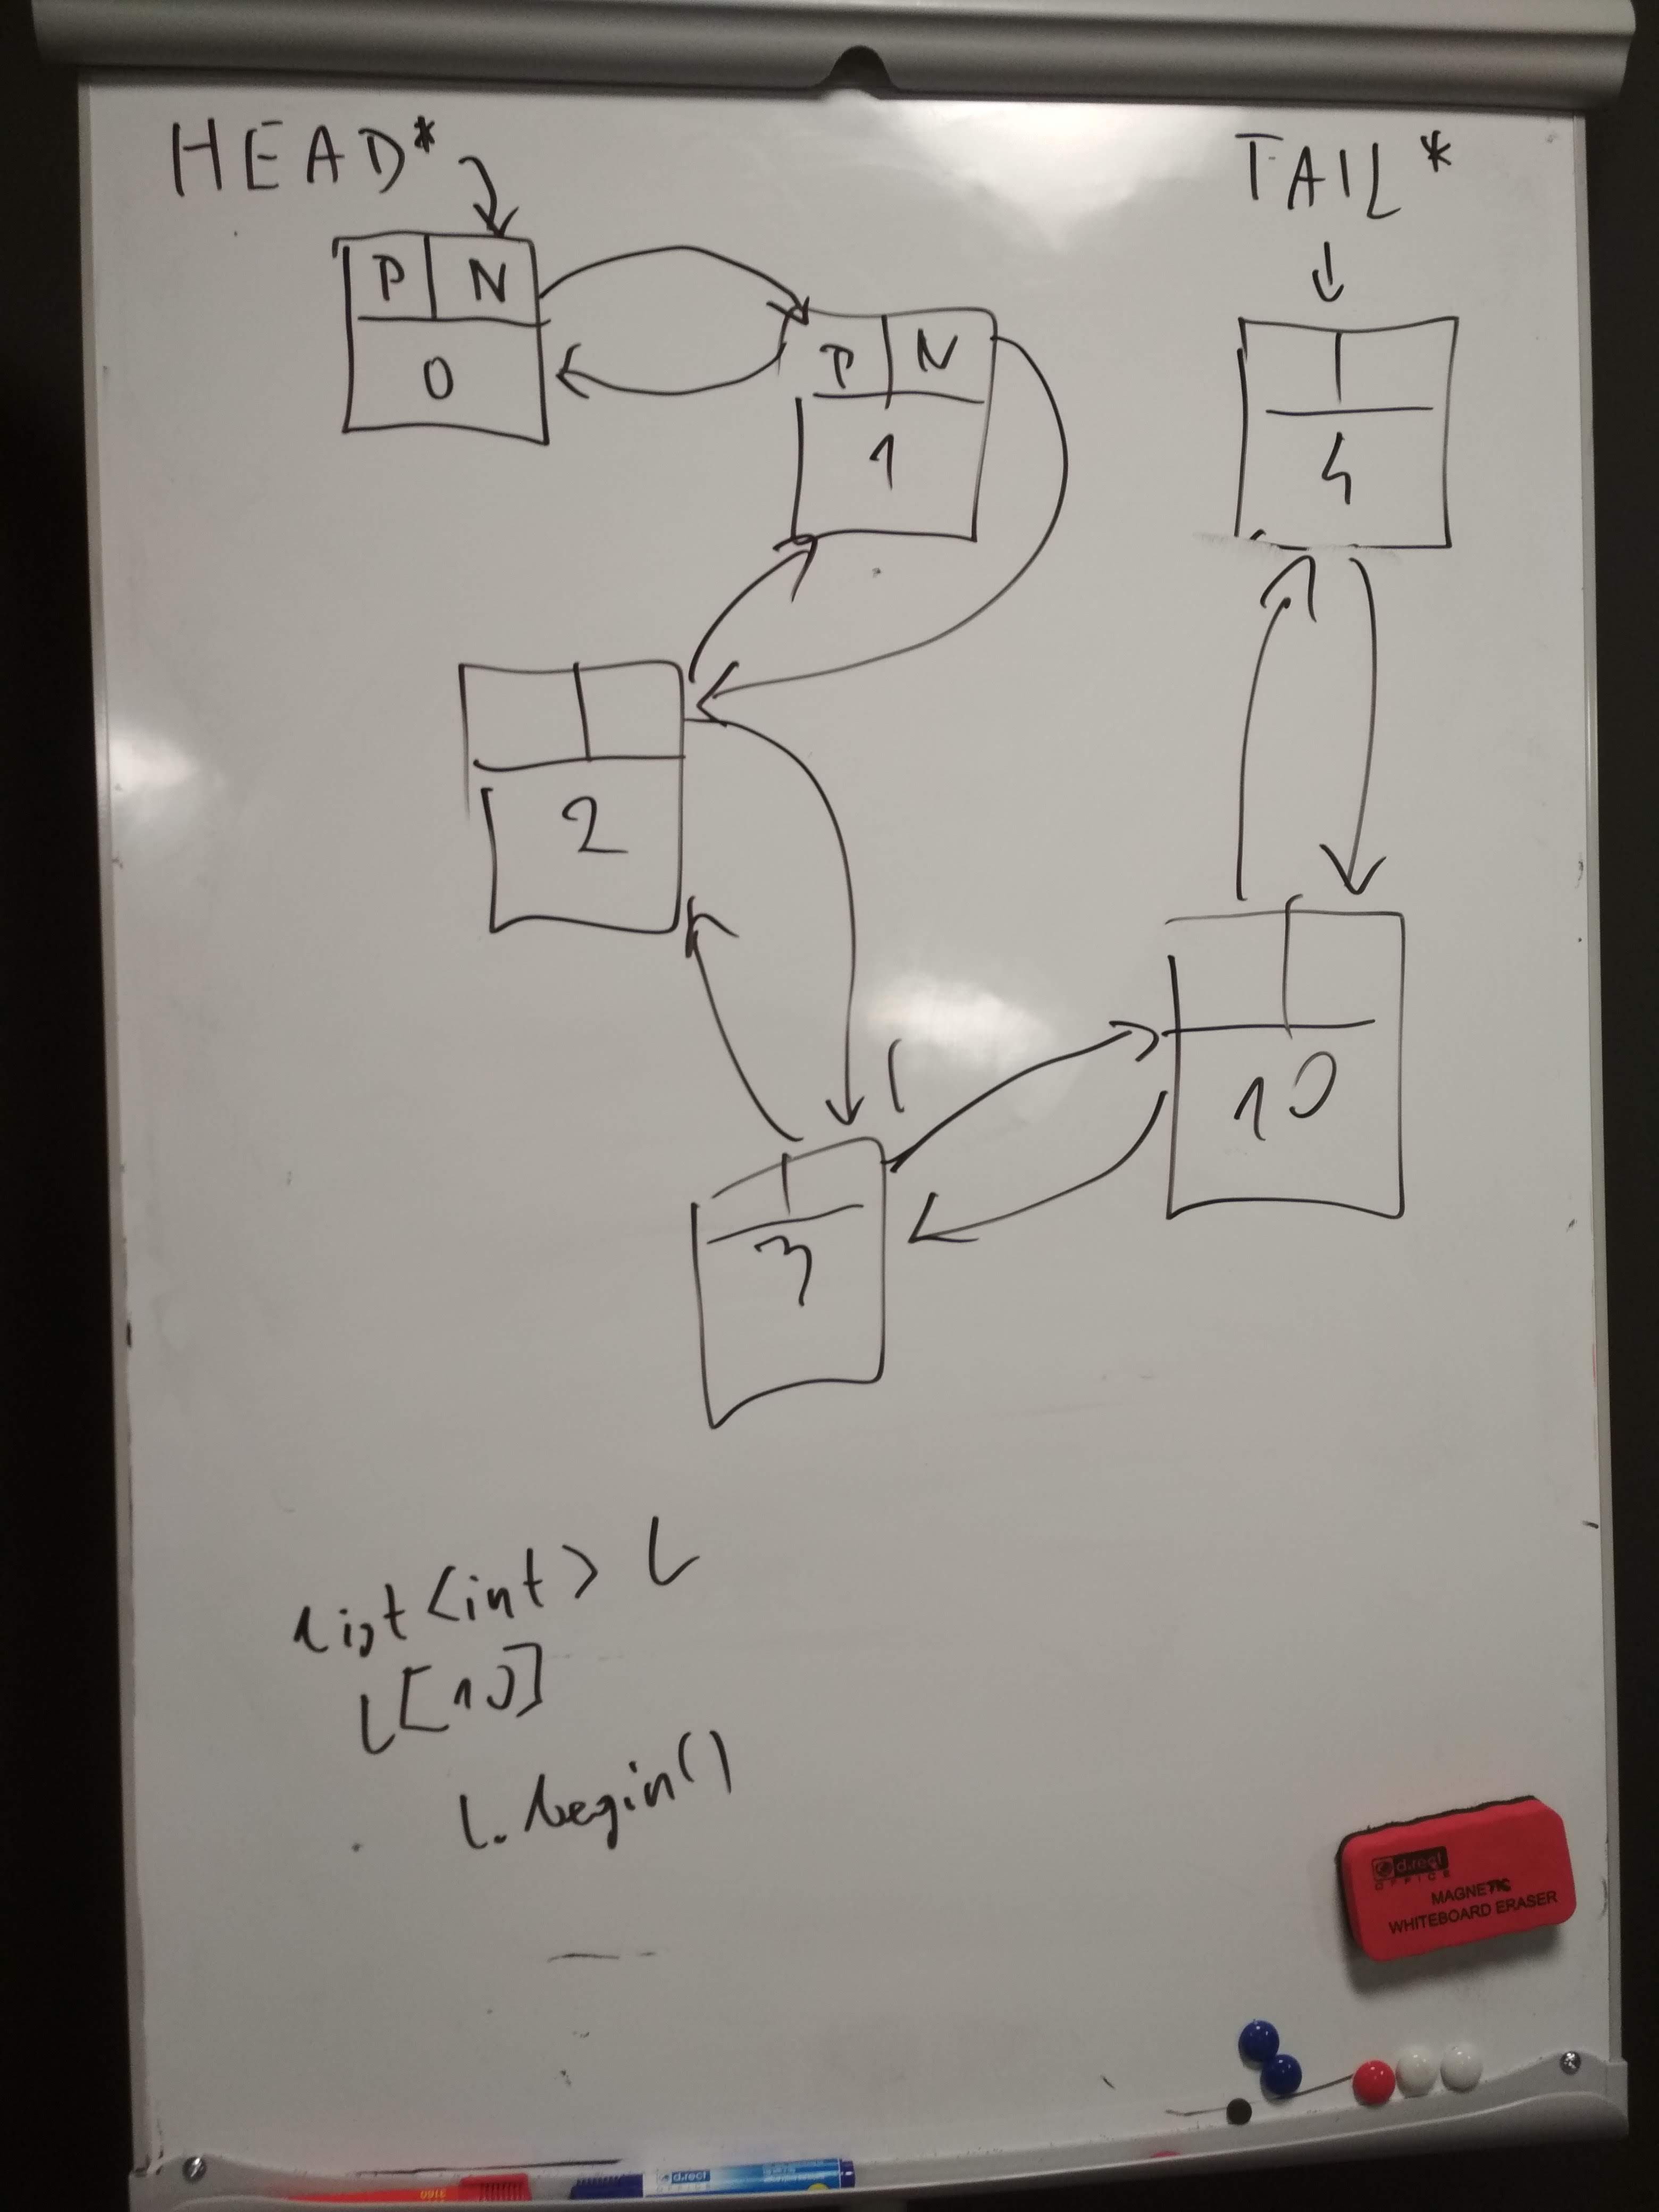 HEAD*
TAIL*
P N
0
P N
1
4
2
10
3
list<int> L
L[10]
L.begin()
d.rect
OFFICE
MAGNETIC
WHITEBOARD ERASER
d.rect